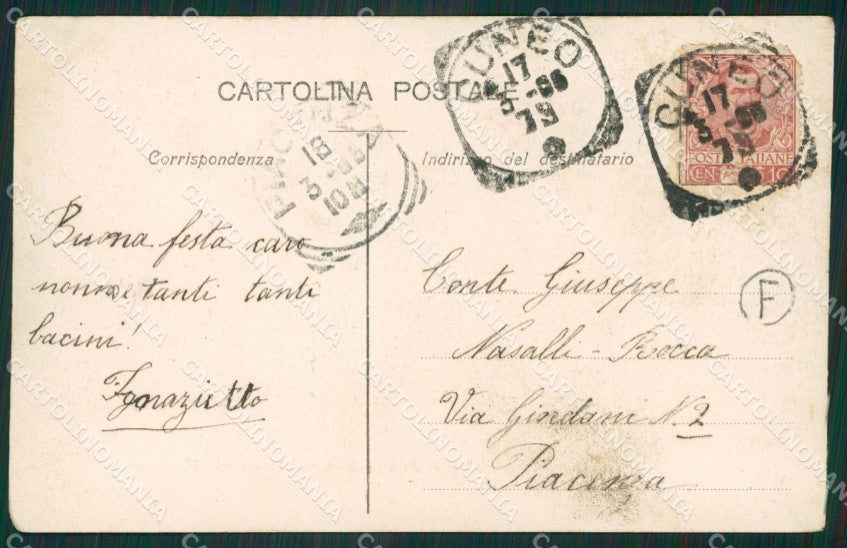 CARTOLINA POSTALE
Corrispondenza
Indirizzo del destinatario
CUNEO
17
CUNEO
17
POSTE ITALIANE
CEN. 10
PIACENZA
18
Buona festa caro
nonno e tanti tanti
bacini!
Ignazietto
Conte Giuseppe
Nasalli - Rocca
Via Giordani N. 2
Piacenza
F
CARTOLINOMANIA